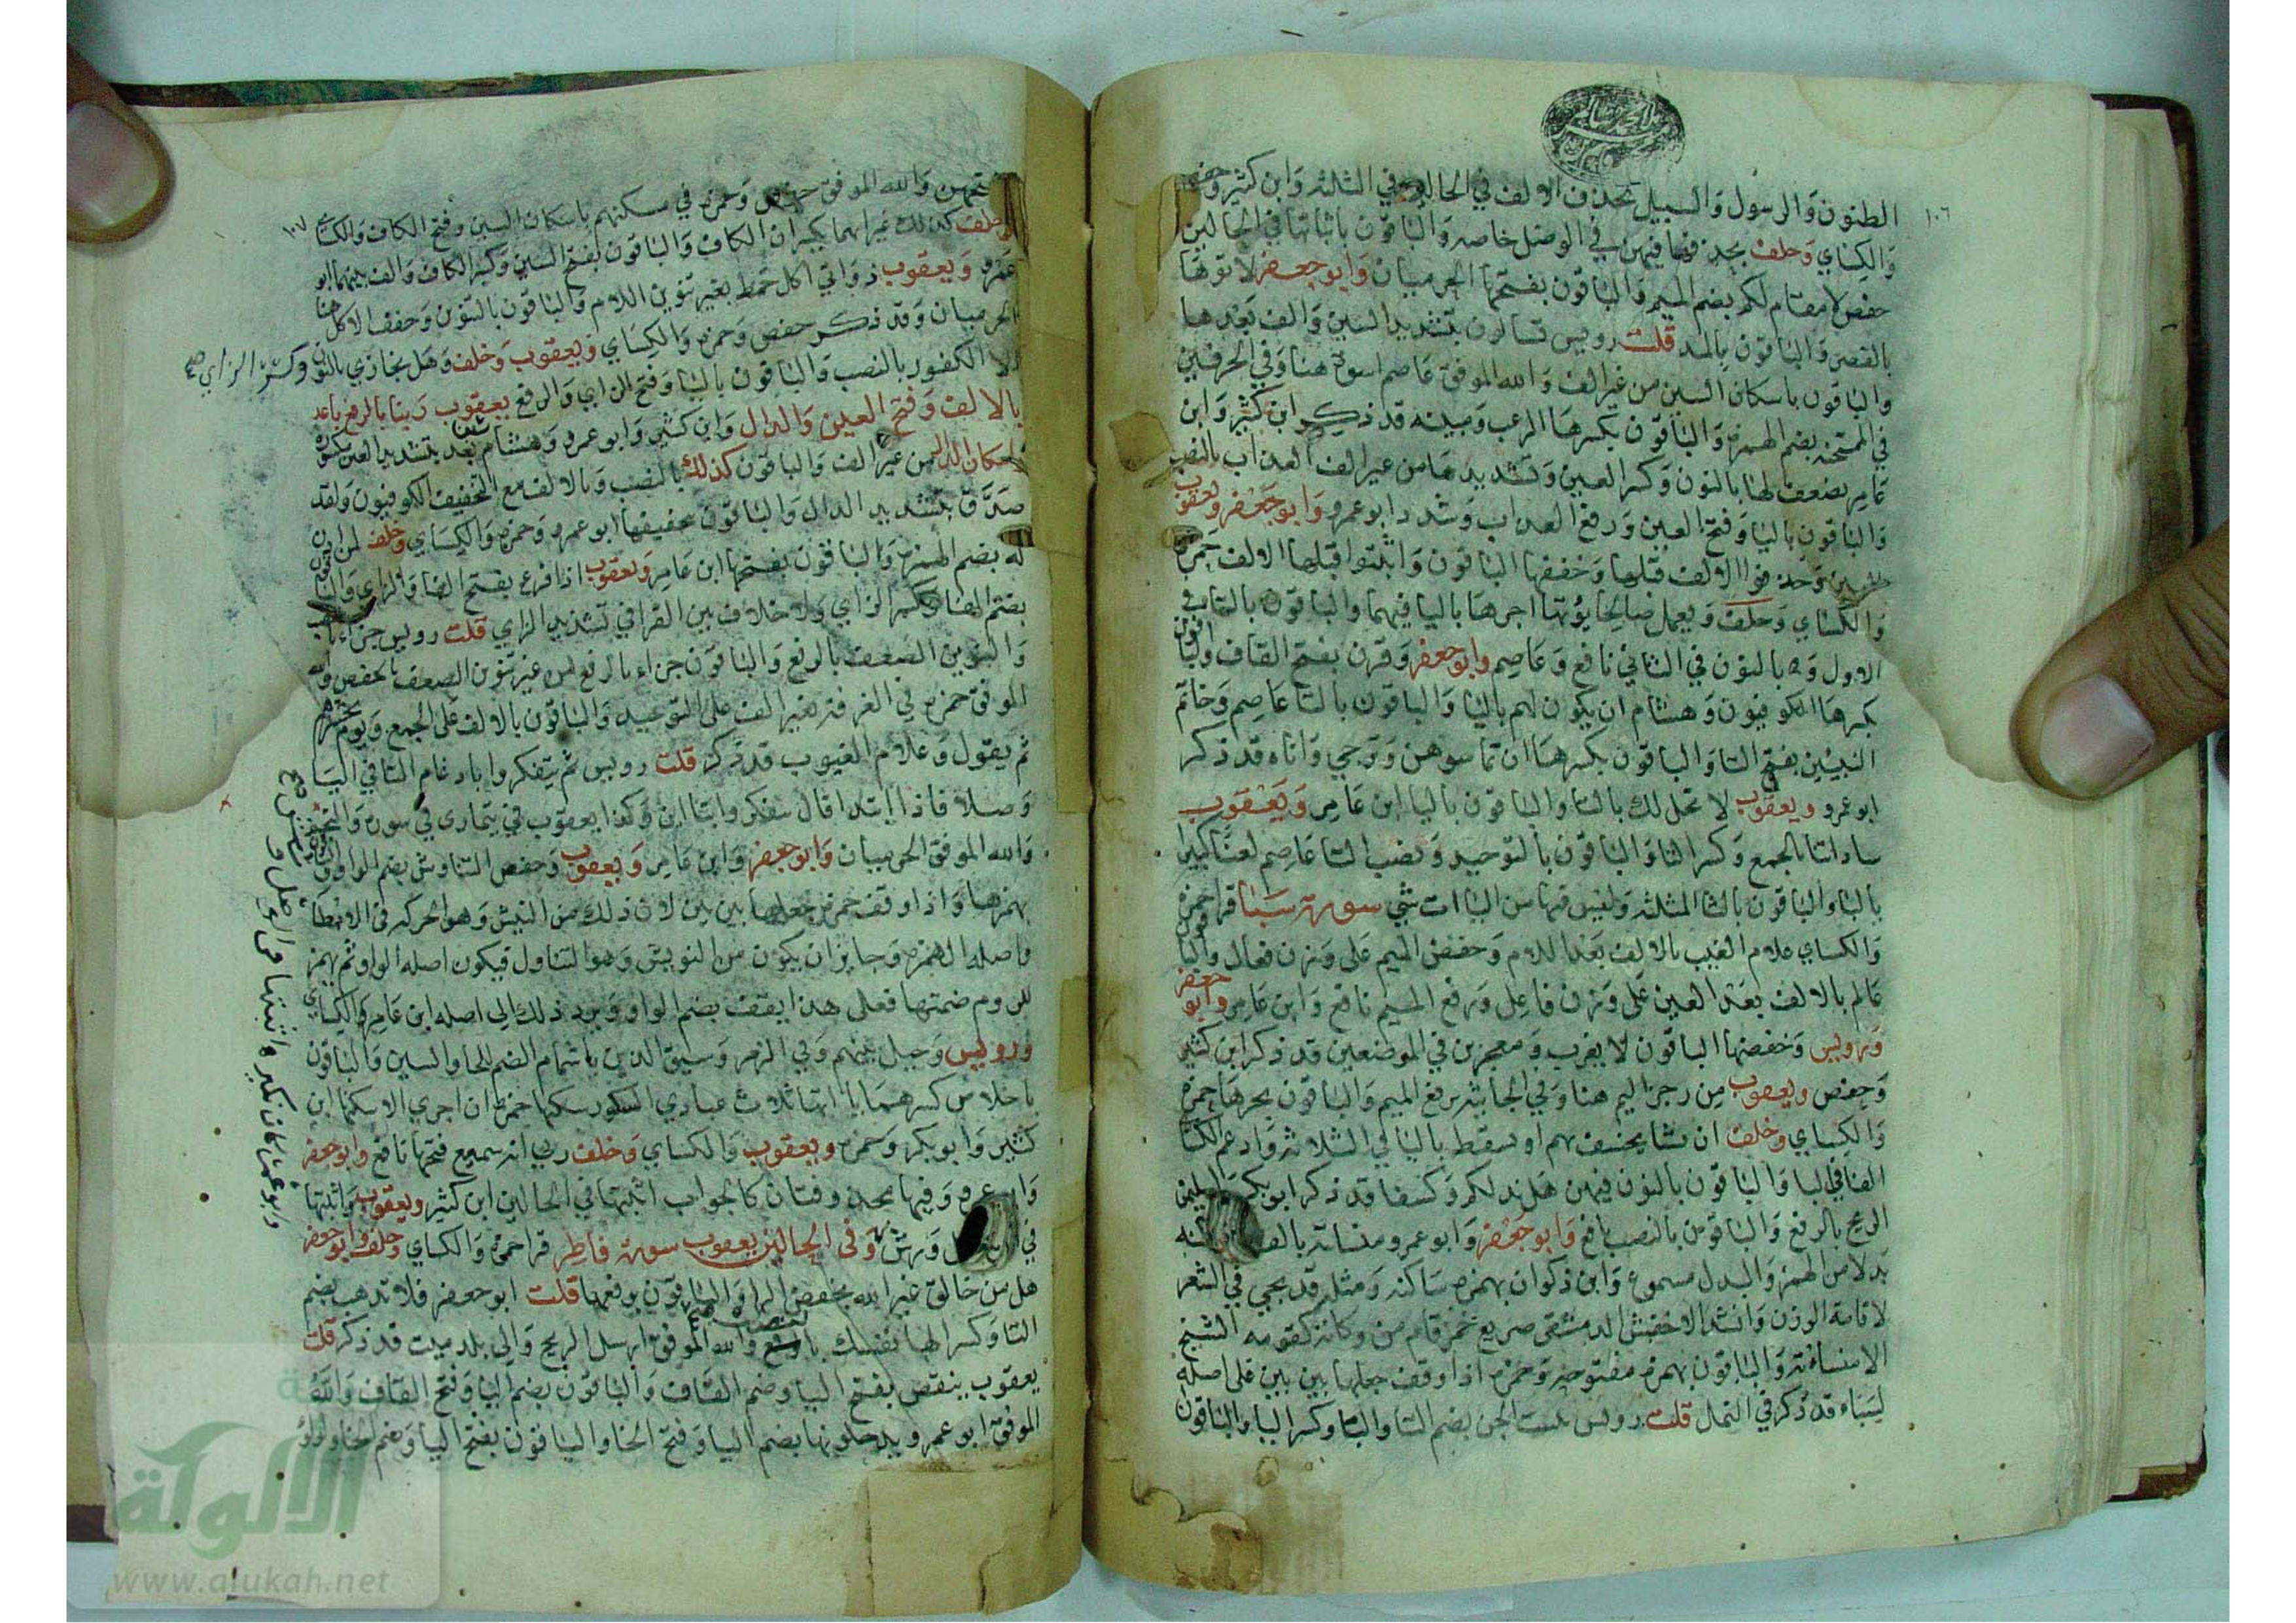 ١٠٦
الظنون والرسول والسبيل بحذف الالف في الحالين في الثلثه وابن كثير وحفص
والكسائي وخلف بحذفها فيهن في الوصل خاصه والباقون باثباتها في الحالين
حفص لا مقام لكم بضم الميم والباقون بفتحها الحرميان وابو جعفر لاتوها
بالقصر والباقون بالمد قلت رويس تسالون بتشديد السين والف بعدها
والباقون باسكان السين من غير الف والله الموفق عاصم اسوة هنا وفي الحرفين
في الممتحنه بضم الهمزه والباقون بكسرها الرعب ومبينه قد ذكر ابن كثير وابن
عامر نضعف لها بالنون وكسر العين وتشديدها من غير الف العذاب بالنصب
والباقون باليا وفتح العين ورفع العذاب وشدد ابو عمرو وابو جعفر ويعقوب
العين وحذفوا الالف قبلها وخففها الباقون واثبتوا قبلها الالف حمزه
والكسائي وخلف ويعمل صالحا يؤتها اجرها باليا فيهما والباقون بالتا في
الاول وبالنون في الثاني نافع وعاصم وابو جعفر وقرن بفتح القاف والباقون
بكسرها الكوفيون وهشام ان يكون لهم باليا والباقون بالتا عاصم وخاتم
النبيين بفتح التا والباقون بكسرها ان تماسوهن وترجي واناه قد ذكر
ابو عمرو ويعقوب لا تحل لك بالتا والباقون باليا ابن عامر ويعقوب
ساداتنا بالجمع وكسر التا والباقون بالتوحيد ونصب التا عاصم لعنا كبيرا
بالبا والباقون بالثا المثلثه وليس فيها من الياات شي سورة سبا قرا حمزه
والكسائي علام الغيب بالالف بعد اللام وخفض الميم على وزن فعال والباقون
عالم بالالف بعد العين على وزن فاعل ورفع الميم نافع وابن عامر وابو جعفر
ورويس وخفضها الباقون لا يعزب ومعجزين في الموضعين قد ذكر ابن كثير
وحفص ويعقوب من رجز اليم هنا وفي الجاثيه برفع الميم والباقون بجرها حمزه
والكسائي وخلف ان يشا يخسف بهم او يسقط باليا في الثلاثه وادغم الكسا
الفا في البا والباقون بالنون فيهن هل ندلكم وكسفا قد ذكر ابو بكر ولسليمن
الريح بالرفع والباقون بالنصب نافع وابو جعفر وابو عمرو منساته بالف
بدلا من الهمزه والبدل مسموع وابن ذكوان بهمزه ساكنه ومثله قد يجي في الشعر
لاقامة الوزن وانشد الاخفش الدمشقي صريع خمر قام من وكاته كقومه الشيخ
الا منساته والباقون بهمزه مفتوحه وحمزه اذا وقف جعلها بين بين على اصله
لسباء قد ذكر في النمل قلت رويس تبينت الجن بضم التا والبا وكسر اليا والباقون
١٠٧
بفتحهن والله الموفق حفص وحمزه في مسكنهم باسكان السين وفتح الكاف والكسائي
وخلف كذلك غير انهما يكسران الكاف والباقون بفتح السين وكسر الكاف والف بينهما ابو
عمرو ويعقوب ذواتي اكل خمط بغير تنوين اللام والباقون بالتنوين وخفف الاكل هنا
الحرميان وقد ذكر حفص وحمزه والكسائي ويعقوب وخلف وهل نجازي بالنون وكسر الزاي صح
الا الكفور بالنصب والباقون باليا وفتح الزاي والرفع يعقوب ربنا بالرفع باعد
بالالف وفتح العين والدال وابن كثير وابو عمرو وهشام بعد بتشديد العين مكسورة
باسكان الدال من غير الف والباقون كذلك بالنصب وبالالف مع التخفيف الكوفيون ولقد
صدق بتشديد الدال والباقون بتخفيفها ابو عمرو وحمزه والكسائي وخلف لمن اذن
له بضم الهمزه والباقون بفتحها ابن عامر ويعقوب اذا فزع بفتح الفا والزاي والباقون
بضم الفا وكسر الزاي ولا خلاف بين القرا في تشديد الزاي قلت رويس جزاء بالنصب
والتنوين الضعف بالرفع والباقون جزاء بالرفع من غير تنوين الضعف بالخفض والله
الموفق حمزه في الغرفه بغير الف على التوحيد والباقون بالالف على الجمع ويوم نحشرهم
ثم يقول وعلام الغيوب قد ذكر قلت رويس ثم يتفكروا بادغام التا في التا
وصلا فاذا ابتدا قال تتفكروا بتاين وكذا يعقوب في يتمارى في سورة والنجم
والله الموفق الحرميان وابو جعفر وابن عامر ويعقوب وحفص التناوش بضم الواو والباقون
بهمزها واذا وقف حمزه جعلها بين بين لان ذلك من النيش وهو الحركه في الابطا
فاصله الهمزه وجايز ان يكون من النوش وهو التناول فيكون اصله الواو ثم يهمز
للزوم ضمتها فعلى هذا يقف بضم الواو ويرد ذلك الى اصله ابن عامر والكسائي
ورويس وحيل بينهم وفي الزمر وسيق الذين باشمام الضم للحا والسين والباقون
باخلاص كسرهما ياآتها ثلاث عبادي الشكور سكنها حمزه ان اجري الا سكنها ابن
كثير وابو بكر وحمزه ويعقوب والكسائي وخلف ربي انه سميع فتحها نافع وابو جعفر
وابو عمرو وفيها محذوفتان كالجواب اثبتها في الحالين ابن كثير ويعقوب واثبتها
في الوصل ورش وفي الحالين يعقوب سورة فاطر قرا حمزه والكسائي وخلف وابو جعفر
هل من خالق غير الله بخفض الرا والباقون برفعها قلت ابو جعفر فلا تذهب بضم
التا وكسر الها نفسك بالنصب والله الموفق ارسل الريح والى بلد ميت قد ذكر قلت
يعقوب ينقص بفتح اليا وضم القاف والباقون بضم اليا وفتح القاف والله
الموفق ابو عمرو يدخلونها بضم اليا وفتح الخا والباقون بفتح اليا وضم الخا ولؤلؤ
وابو عمرو نكير واثبتها في الوصل ورش صح
الألوكة
www.alukah.net